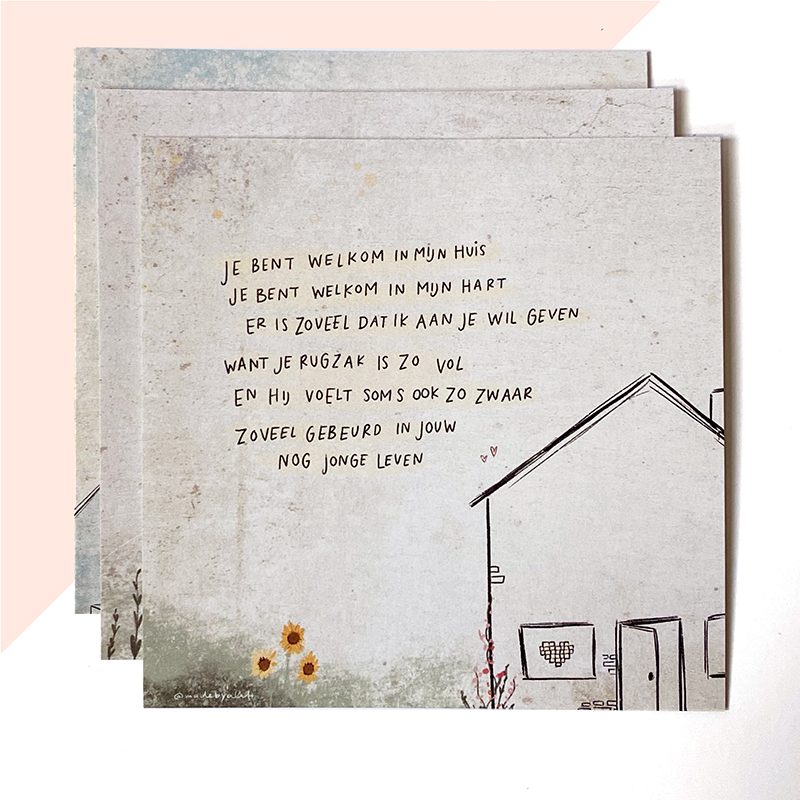 JE BENT WELKOM IN MIJN HUIS
JE BENT WELKOM IN MIJN HART
ER IS ZOVEEL DAT IK AAN JE WIL GEVEN
WANT JE RUGZAK IS ZO VOL
EN HIJ VOELT SOMS OOK ZO ZWAAR
ZOVEEL GEBEURD IN JOUW
NOG JONGE LEVEN